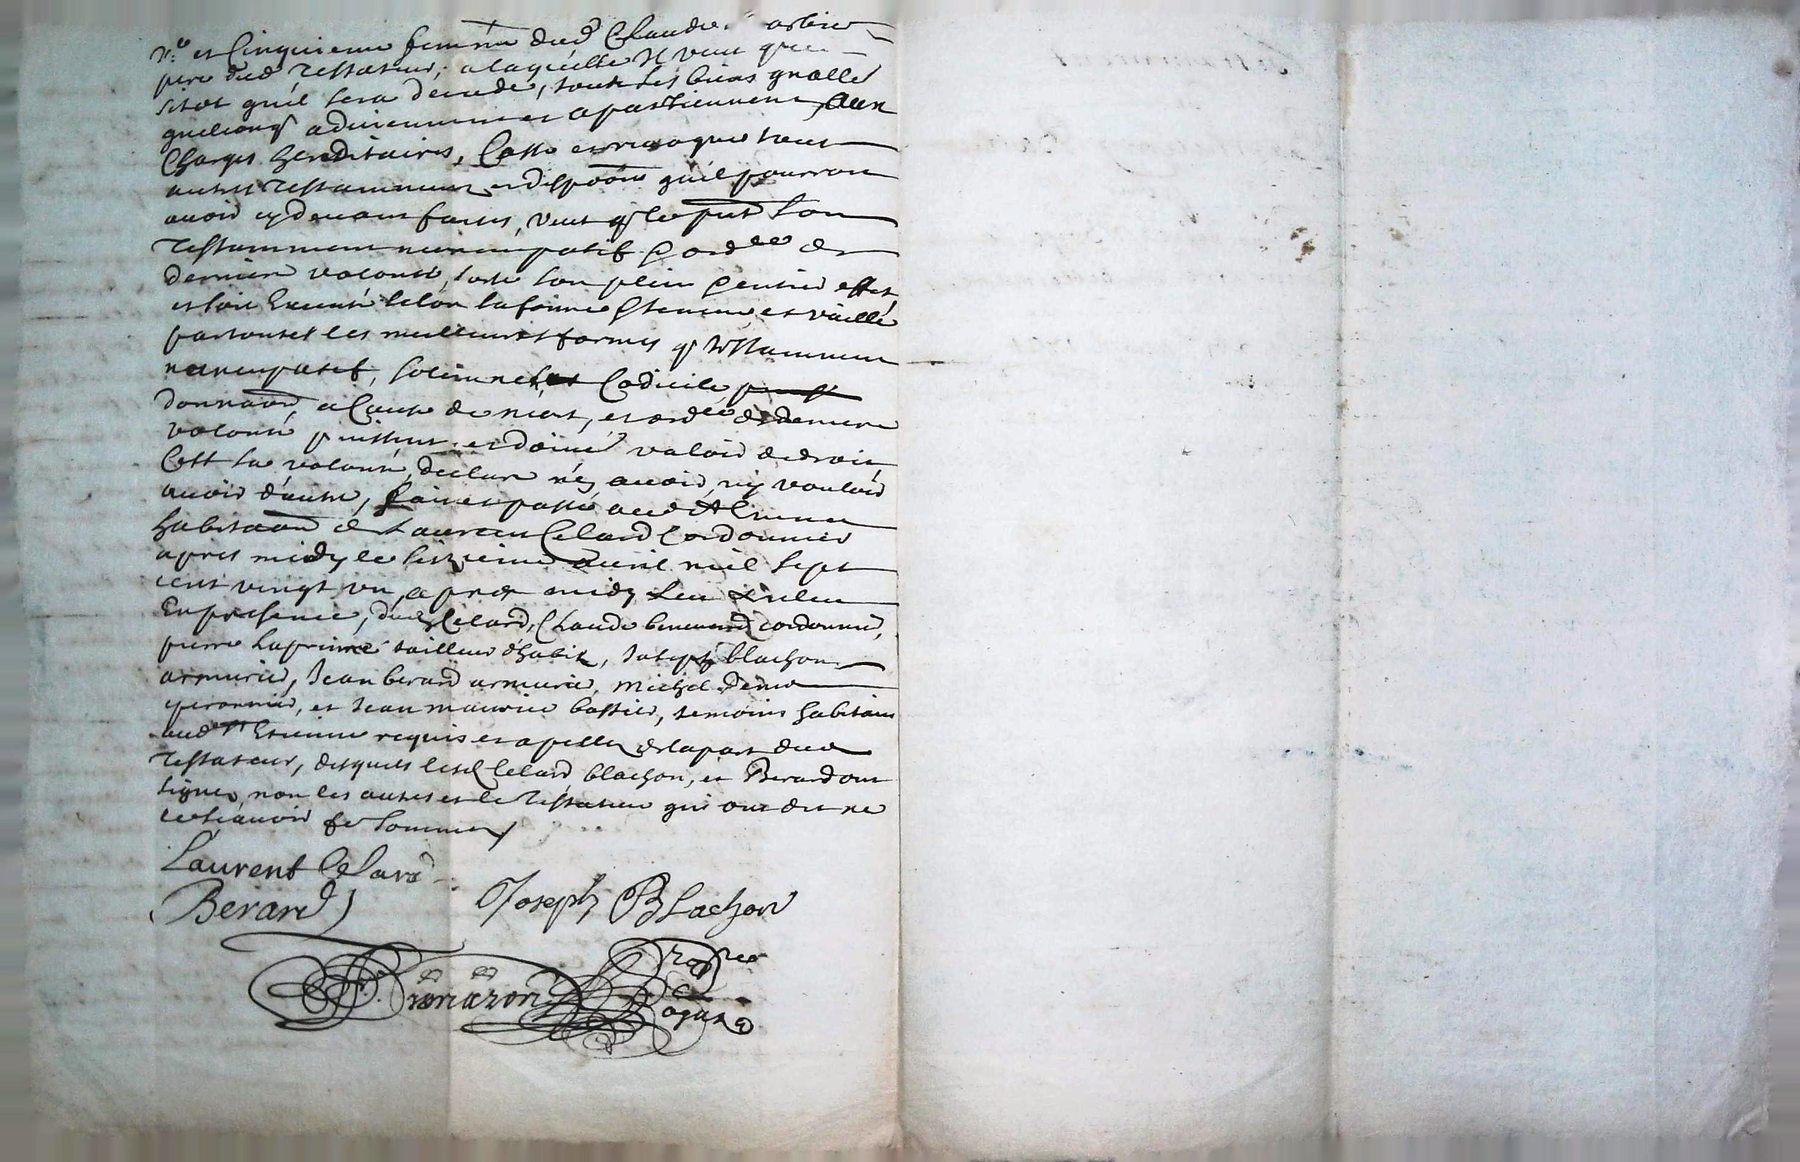 et Cinquieme femme dud Claude
pere dud Testateur, a laquelle Il veut que
sitot quil sera decedé, tous ses biens gnalle
quelconqs adviennent et apartiennent, aux
Charges hereditaires, Casse et revoque tous
autres Testamment et dispoõns quil pourroit
avoir cy devant faits, veut q le pnt son
Testamment nuncupatif & ordce de
derniere volonté, sorte son plein & entier effet
et soit Executé selon sa forme & teneur et vaille
par toutes les meilleures formes q testamment
nuncupatif, solemnel Codicile
donnaõn, a Cause de mort, et ordce de derniere
volonté puissent et doivent valoir de droit
Cest sa volonté, declare n'en avoir ny vouloir
avoir d'autre, fait et passé aud St Etienne
habitaõn de Laurent Celard Cordonnier
apres midy le seizieme avril mil sept
cent vingt un, apres midy
En presence, dud Celard, Claude benevend cordonnier,
pierre Laprime tailleur d'habit, Joseph blachon
armurier, Jean berard armurier, michel
et Jean maurice bastier, temoins habitans
aud St Etienne requis et apellez de la part dud
Testateur, desquels lesd Celard blachon, et Berard ont
signé, non les autres et le Testateur qui ont dit ne
le sçavoir de sommez
Laurent Celard
Berard Joseph Blachon